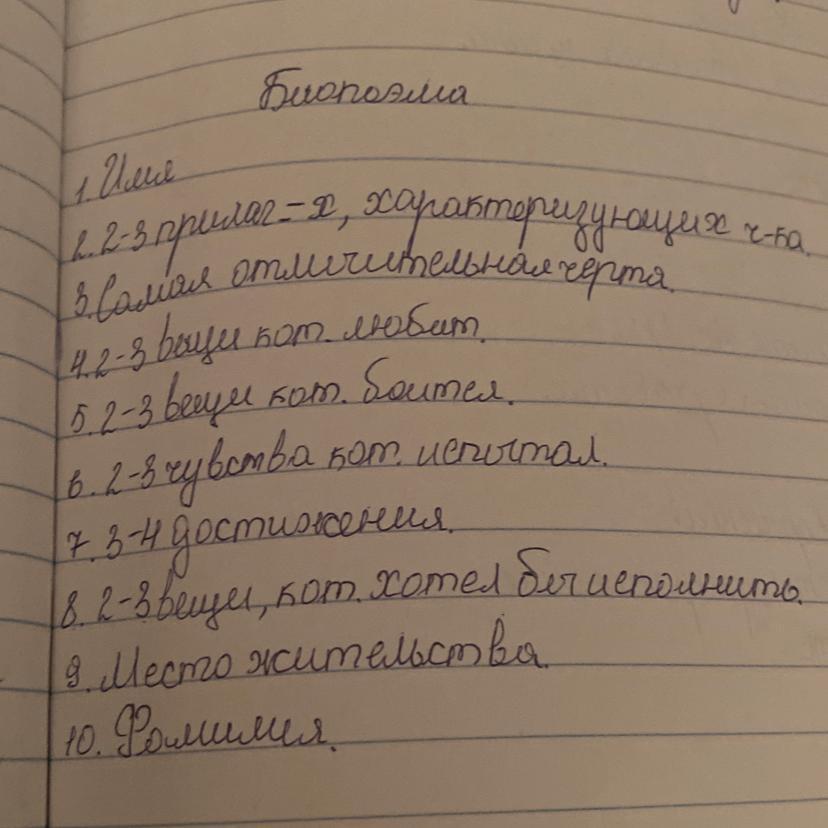 Биопоэма
1. Имя
2. 2-3 прилаг-х, характеризующих ч-ка.
3. Самая отличительная черта.
4. 2-3 вещи кот. любит.
5. 2-3 вещи кот. боится.
6. 2-3 чувства кот. испытал.
7. 3-4 достижения.
8. 2-3 вещи, кот. хотел бы исполнить.
9. Место жительства.
10. Фамилия.